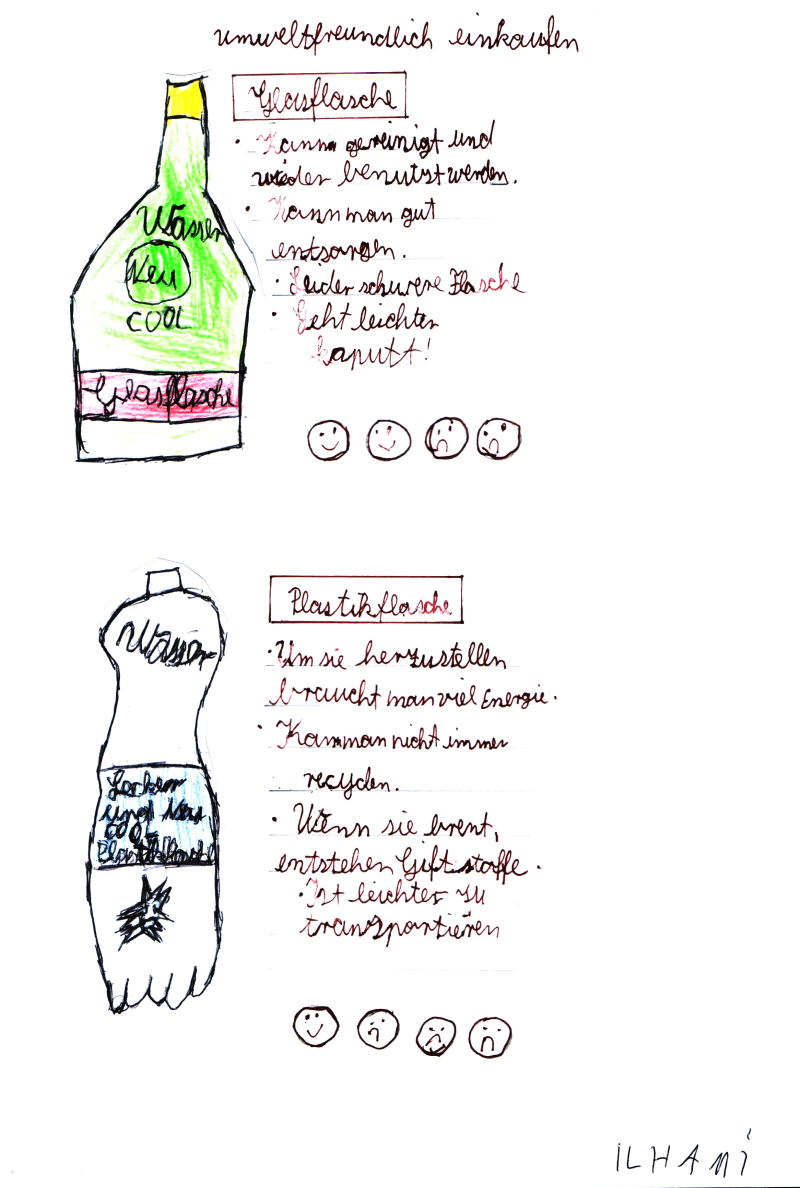 umweltfreundlich einkaufen
Glasflasche
• Kann gereinigt und
wieder benutzt werden.
• Kann man gut
entsorgen.
• Leider schwere Flasche
• Geht leichter
kaputt!
Wasser
Neu
COOL
Glasflasche
Plastikflasche
• Um sie herzustellen
braucht man viel Energie.
• Kann man nicht immer
recyclen.
• Wenn sie brent,
entstehen Giftstoffe.
• Ist leichter zu
transportieren
Wasser
Lecker
und
COOL
Plastikflasche
ILHAMi